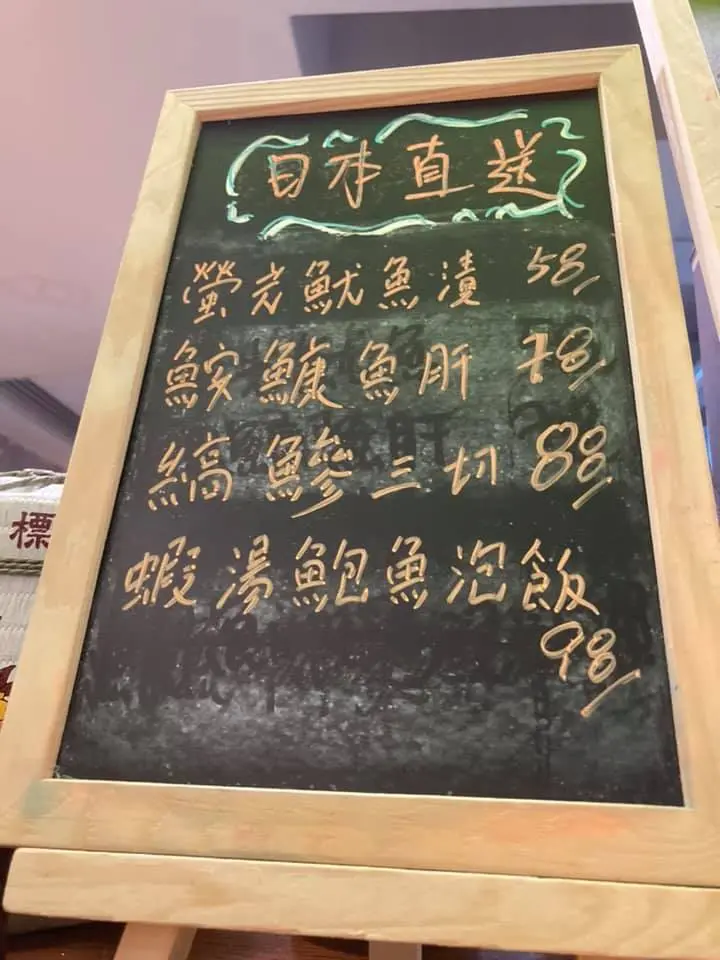 日本直送
螢光魷魚漬 58/
鮟鱇魚肝 78/
縞鰺三切 88/
標
蝦湯鮑魚泡飯
98/